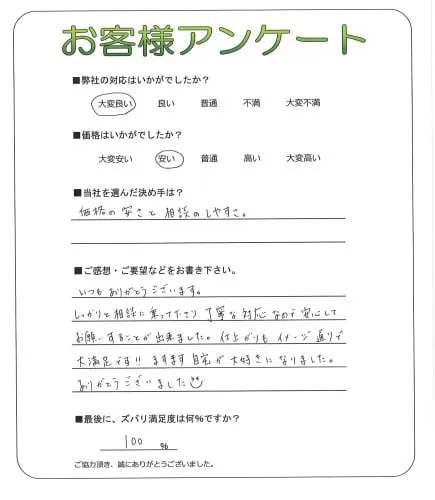 お客様アンケート
■弊社の対応はいかがでしたか?
大変良い 良い 普通 不満 大変不満
■価格はいかがでしたか?
大変安い 安い 普通 高い 大変高い
■当社を選んだ決め手は?
価格の安さと相談のしやすさ。
■ご感想・ご要望などをお書き下さい。
いつもありがとうございます。
しっかりと相談に乗って下さり、丁寧な対応なので安心して
お願いすることが出来ました。仕上がりもイメージ通りで
大満足です!!ますます自宅が大好きになりました。
ありがとうございました
■最後に、ズバリ満足度は何%ですか?
100 %
ご協力頂き、誠にありがとうございました。